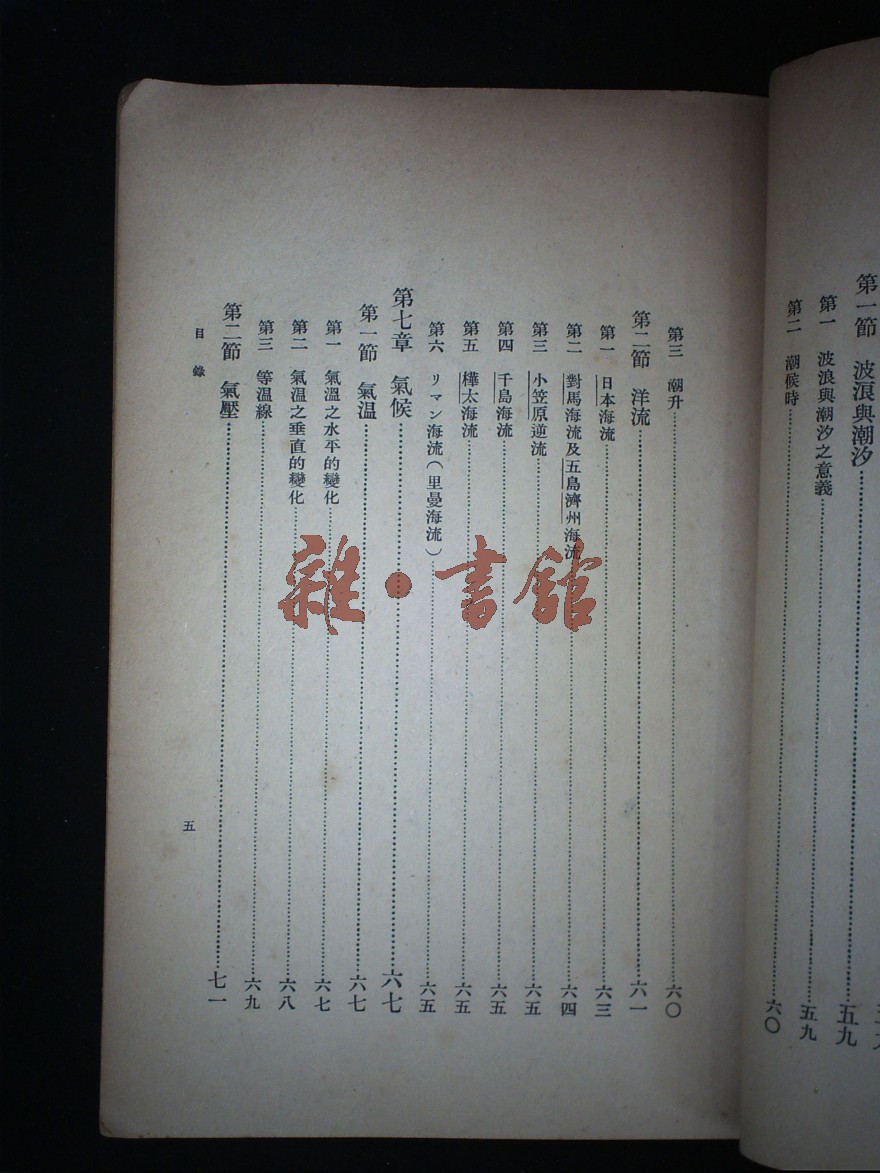 第一節　波浪與潮汐……五九
第一　波浪與潮汐之意義……五九
第二　潮候時……六〇
第三　潮升……六〇
第二節　洋流……六一
第一　日本海流……六三
第二　對馬海流及五島濟州海流……六四
第三　小笠原逆流……六五
第四　千島海流……六五
第五　樺太海流……六五
第六　リマン海流（里曼海流）……六五
第七章　氣候……六七
第一節　氣温……六七
第一　氣溫之水平的變化……六七
第二　氣温之垂直的變化……六八
第三　等温線……六九
第二節　氣壓……七一
目錄
五
雜·書館